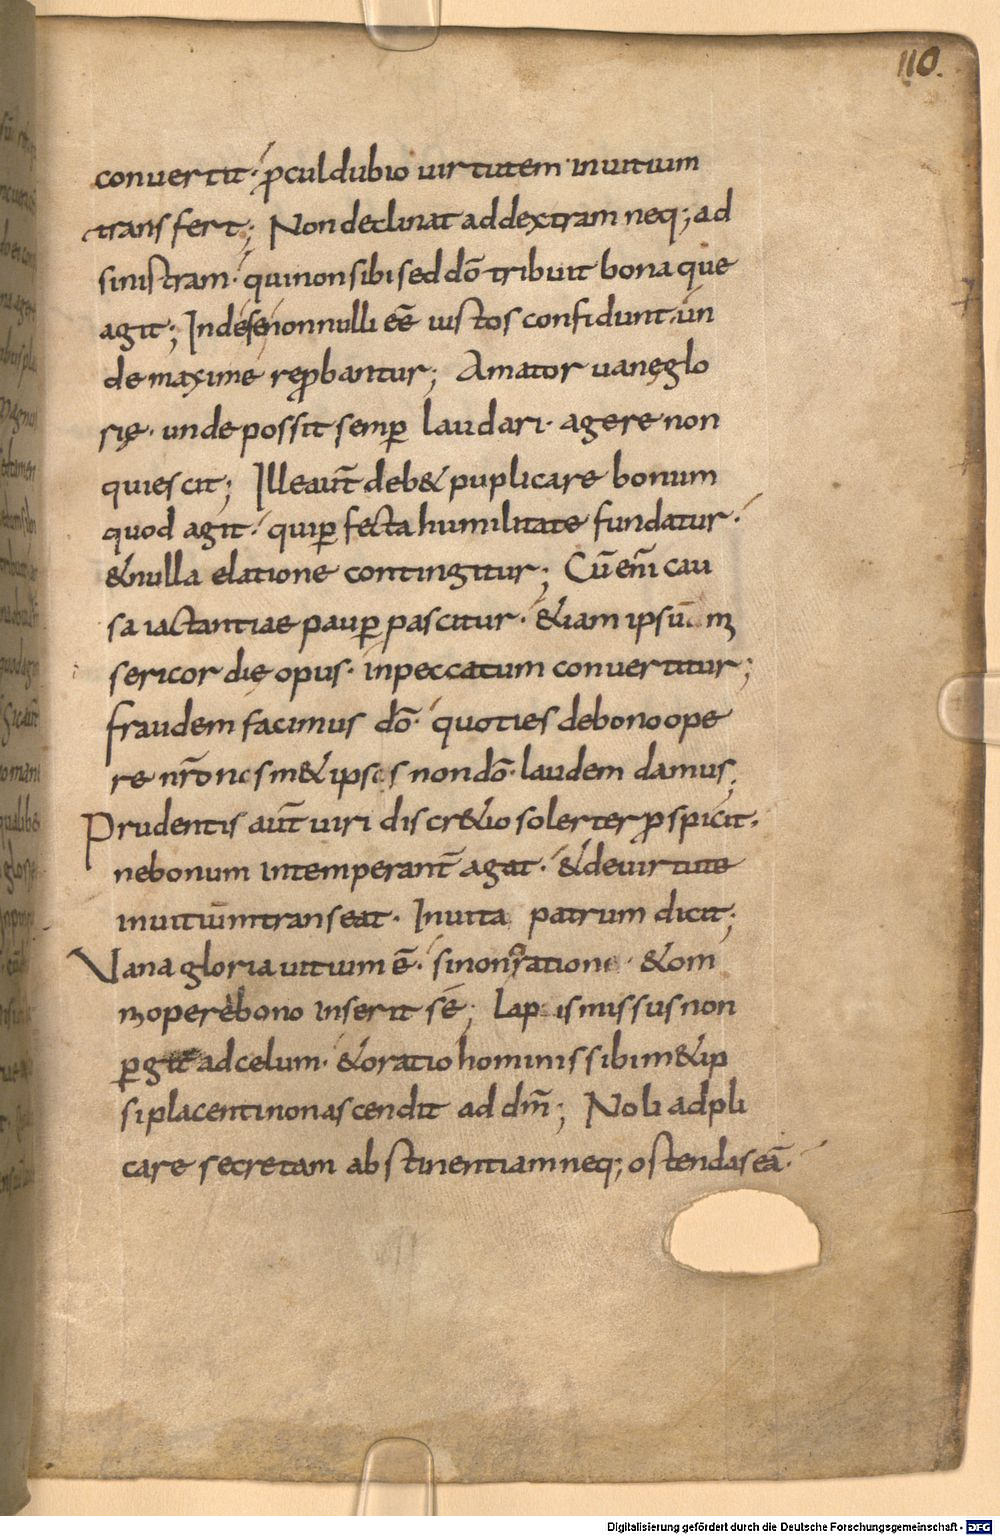 110.
conuertit· ꝓculdubio uirtutem inuitium
transfert; Non declinat addextram neq; ad
sinistram· quinonsibised dō tribuit bona que
agit; Indesenonnulli eē iustos confidunt· un
de maxime reꝓbantur; Amator uaneglo
rię· unde possit semꝑ laudari· agere non
quiescit; Illeaut̄ deb& puplicare bonum
quod agit· quiꝑfectahumilitate fundatur·
&nulla elatione contingitur; Cū eni̅ cau
sa iactantiae pauꝑ pascitur· &iam ipsū m
sericordię opus· inpeccatum conuertitur;
fraudem facimus dō· quoties debonoope
re nr̄o nosm&ipsos nondō· laudem damus;
Prudentis aut̄ uiri discr&io solerter ꝓspicit·
nebonum intemperant̄ agat· &deuirtute
inuitiumtranseat· Inuita patrum dicit;
Vana gloria uitium ē· sinon ratione· &om
ni operebono inserit sé; Lapis missus non
ꝑgit adcelum· &oratio hominis sibim&ip
si placenti non ascendit ad dm̄; Noli adpli
care secretam abstinentiam neq; ostendas eā·
Digitalisierung gefördert durch die Deutsche Forschungsgemeinschaft - DFG